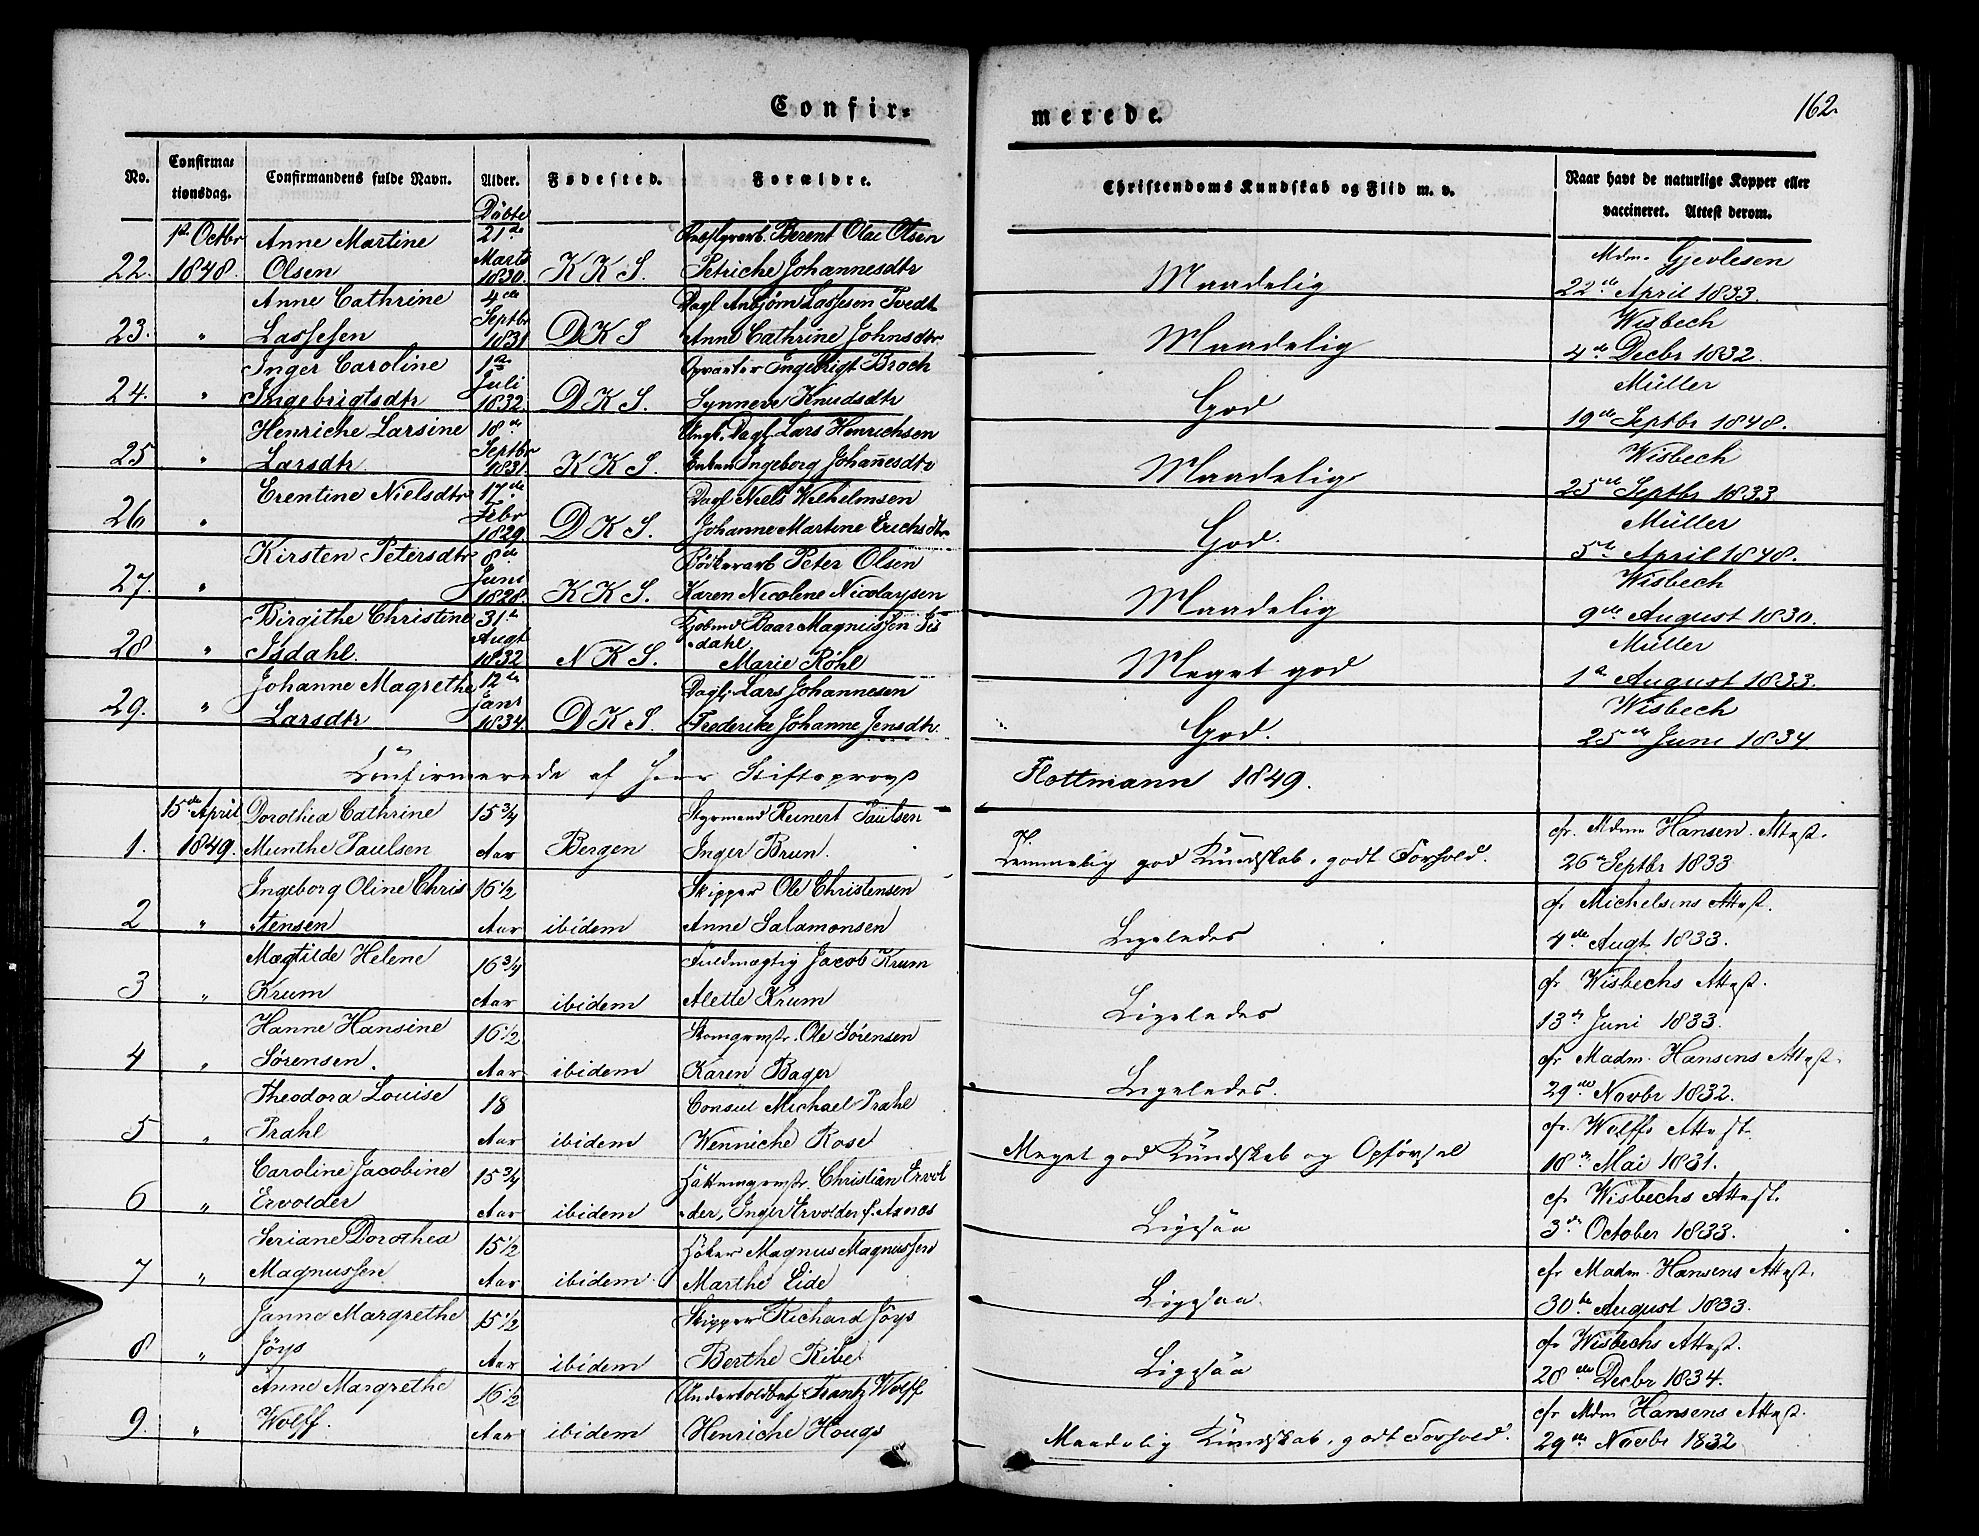 Confir-
merede.
162.
No.
Confirma-
tionsdag.
Confirmandens fulde Navn.
Alder.
Fødested.
Forældre.
Christendoms Kundskab og Flid m. v.
Naar havt de naturlige Kopper eller
vaccineret. Attest derom.
Döbte
1st Octbr Anne Martine 21de Berent Olai Olsen Mdm. Gjevlesen
22. 1848. Olsen Marts 1830. K K S. Petriche Johannesdtr Maadelig 22de April 1833.
Anne Cathrine 4de Dagl. Anbjörn Lassesen Tvedt Wisbech
23. " Lassesen Septbr 1831 D K S Anne Cathrine Johnsdtr Maadelig 4de Decbr 1832.
Inger Caroline 1ste Opvarter Ingebrigt Broch Müller
24. " Ingebrigtsdtr Juli 1832. D K S. Synneve Knudsdtr God 19de Septbr 1848.
Henriche Larsine 18de Ungk. Dagl. Lars Henrichsen Wisbech
25 " Larsdtr Septbr 1831. K K S. Enken Ingeborg Johañesdtr Maadelig 25de Septbr 1833
Erentine Nielsdtr 17de Dagl. Niels Wilhelmsen Müller
26 " Febr 1829 D K S. Johanne Martine Erichsdtr God. 5te April 1848.
Kirsten Petersdtr 8de Bödkerarb Peter Olsen Wisbech
27. " Juni 1828. K K S. Karen Nicolene Nicolaysen Maadelig 9de August 1830.
Birgithe Christine 31te Kjøbmd Baar Magnussen Is- Müller
28 " Isdahl. Augt 1832 N K S. dahl Marie Röhl Meget god 1ste August 1833.
Johanne Magrethe 12te Dagl. Lars Johannesen Wisbech
29. " Larsdtr Janr 1834. D K S. Frederike Johanne Jensdtr. God. 25de Juni 1834
Confirmerede af Herr Stiftsprovst Flottmann 1849.
15de April Dorothea Cathrine 15 3/4 Styrmand Reinert Paulsen cfr. Mdme Hansen. Attest.
1. 1849. Munthe Paulsen Aar Bergen Inger Brun. Temmelig god Kundskab, godt Forhold. 26de Septbr 1833
Ingeborg Oline Chris 16 1/2 Skipper Ole Christensen cfr Michelsens Attest.
2 " tensen Aar ibidem Anne Salamonsen Ligeledes 4de Augt. 1833.
Magtilde Helene 16 3/4 Fuldmægtig Jacob Krum cfr Wisbechs Attest.
3 " Krum Aar ibidem Alette Krum Ligeledes 13de Juni 1833.
Hanne Hansine 16 1/2 Skomgrmstr. Ole Sörensen cfr Madm. Hansens Attest.
4 " Sörensen. Aar ibidem Karen Bager Ligeledes. 29de Novbr 1832.
Theodora Louise 18 Consul Michael Prahl cfr. Wolffs Attest.
5 " Prahl Aar ibidem Wenniche Rose Meget god Kundskab og Opförsel 18de Mai 1831.
Caroline Jacobine 15 3/4 Hattemgrmstr. Christian Ervol cfr Wisbechs Attest.
6 " Ervolder Aar ibidem der, Inger Ervolder f. Aanes Ligesaa 3die October 1833.
Seriane Dorothea 15 1/2 Höker Magnus Magnussen cfr Madm. Hansens Attest.
7 " Magnussen Aar ibidem Marthe Eide Ligesaa. 30te August 1833.
Janne Margrethe 15 1/2 Skipper Richard Jöys cfr Wisbechs Attest.
8 " Jöys Aar ibidem Berthe Ribe Ligesaa 28de Decbr 1834.
Anne Margrethe 16 1/2 Undertoldbetj. Frantz Wolff cfr Mdm Hansens Attest.
9. " Wolff. Aar ibidem Henriche Hougs Maadelig Kundskab, godt Forhold. 29de Novbr 1832